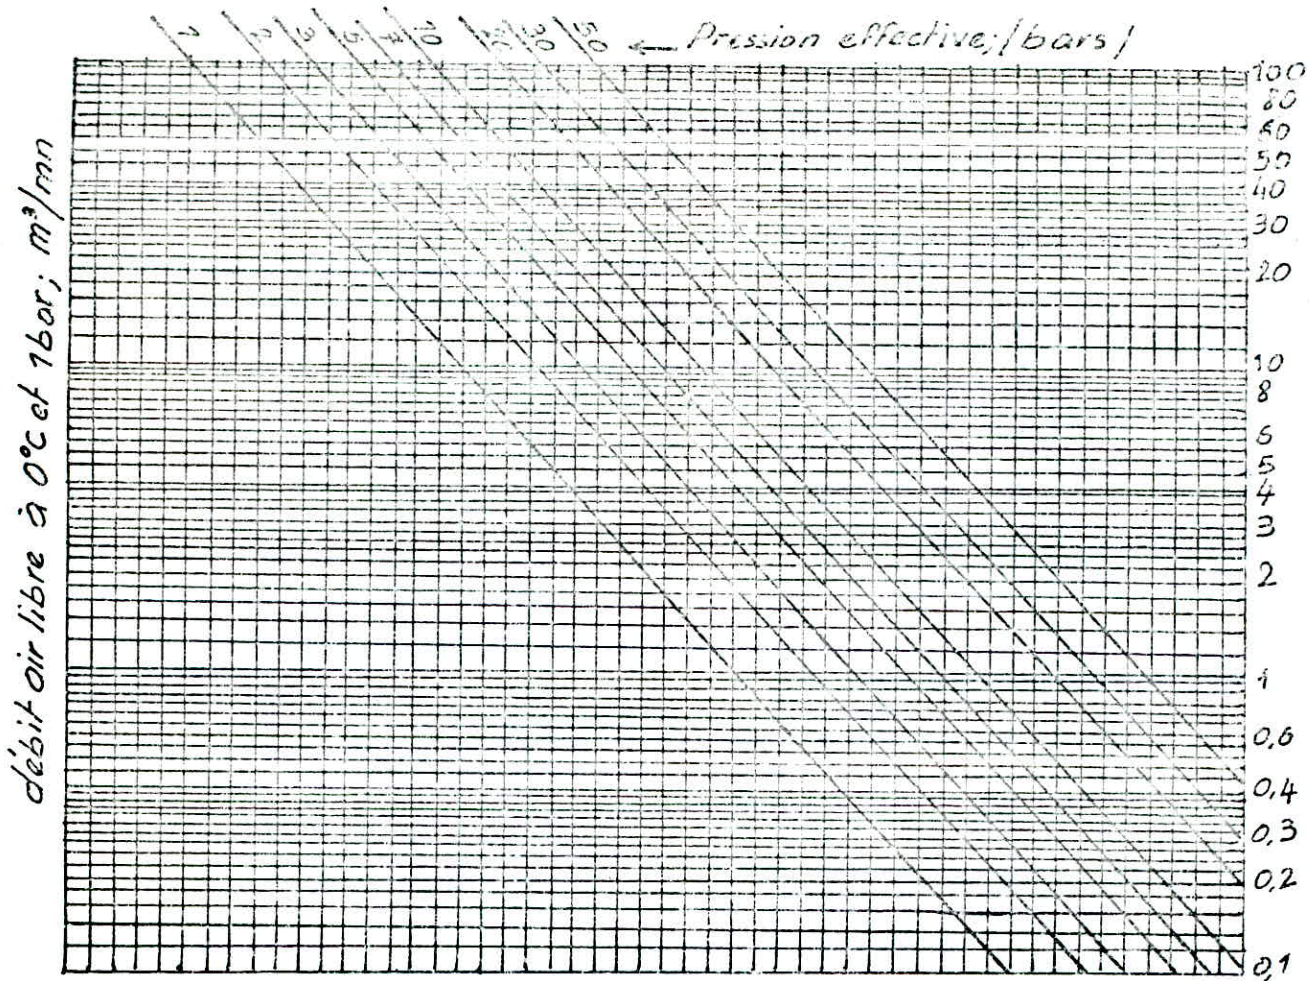 1 2 3 5 7 10 20 30 50 ← Pression effective; (bars)
débit air libre à 0°C et 1bar; m³/mn
100
80
60
50
40
30
20
10
8
6
5
4
3
2
1
0,6
0,4
0,3
0,2
0,1